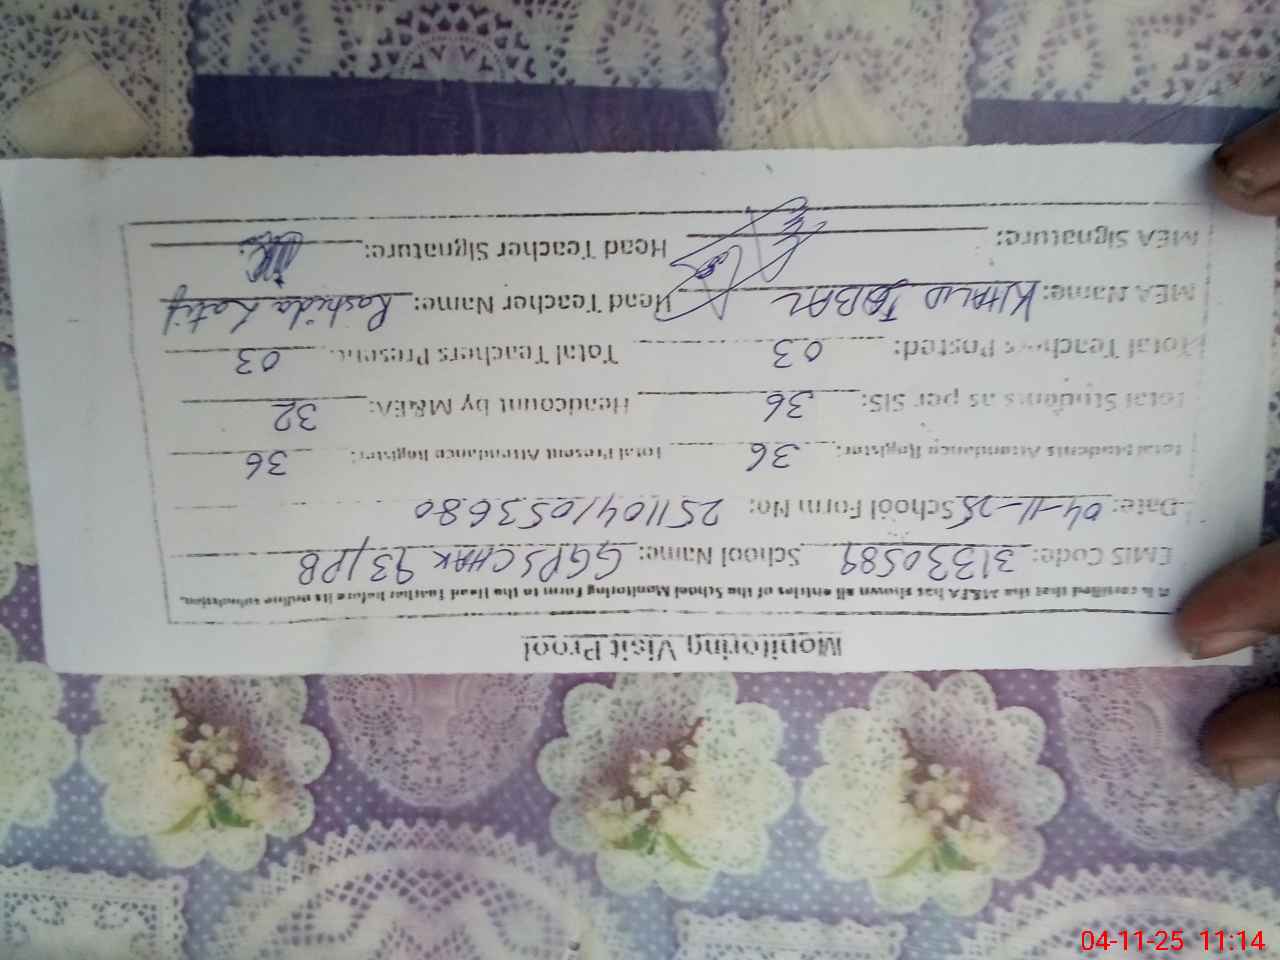 Monitoring Visit Proof
It is certified that the M&EA has shown all entries of the School Monitoring Form to the Head Teacher before its online submission.
EMIS Code: 31330589 School Name: GGPS CHAK 93/PB
Date: 04-11-25 School Form No: 2511041053680
Total Students Attendance Register: 36 Total Present Attendance Register: 36
Total Students as per SIS: 36 Headcount by M&EA: 32
Total Teachers Posted: 03 Total Teachers Present: 03
MEA Name: KHALID IQBAL Head Teacher Name: Rashida Latif
MEA Signature: Head Teacher Signature:
04-11-25 11:14